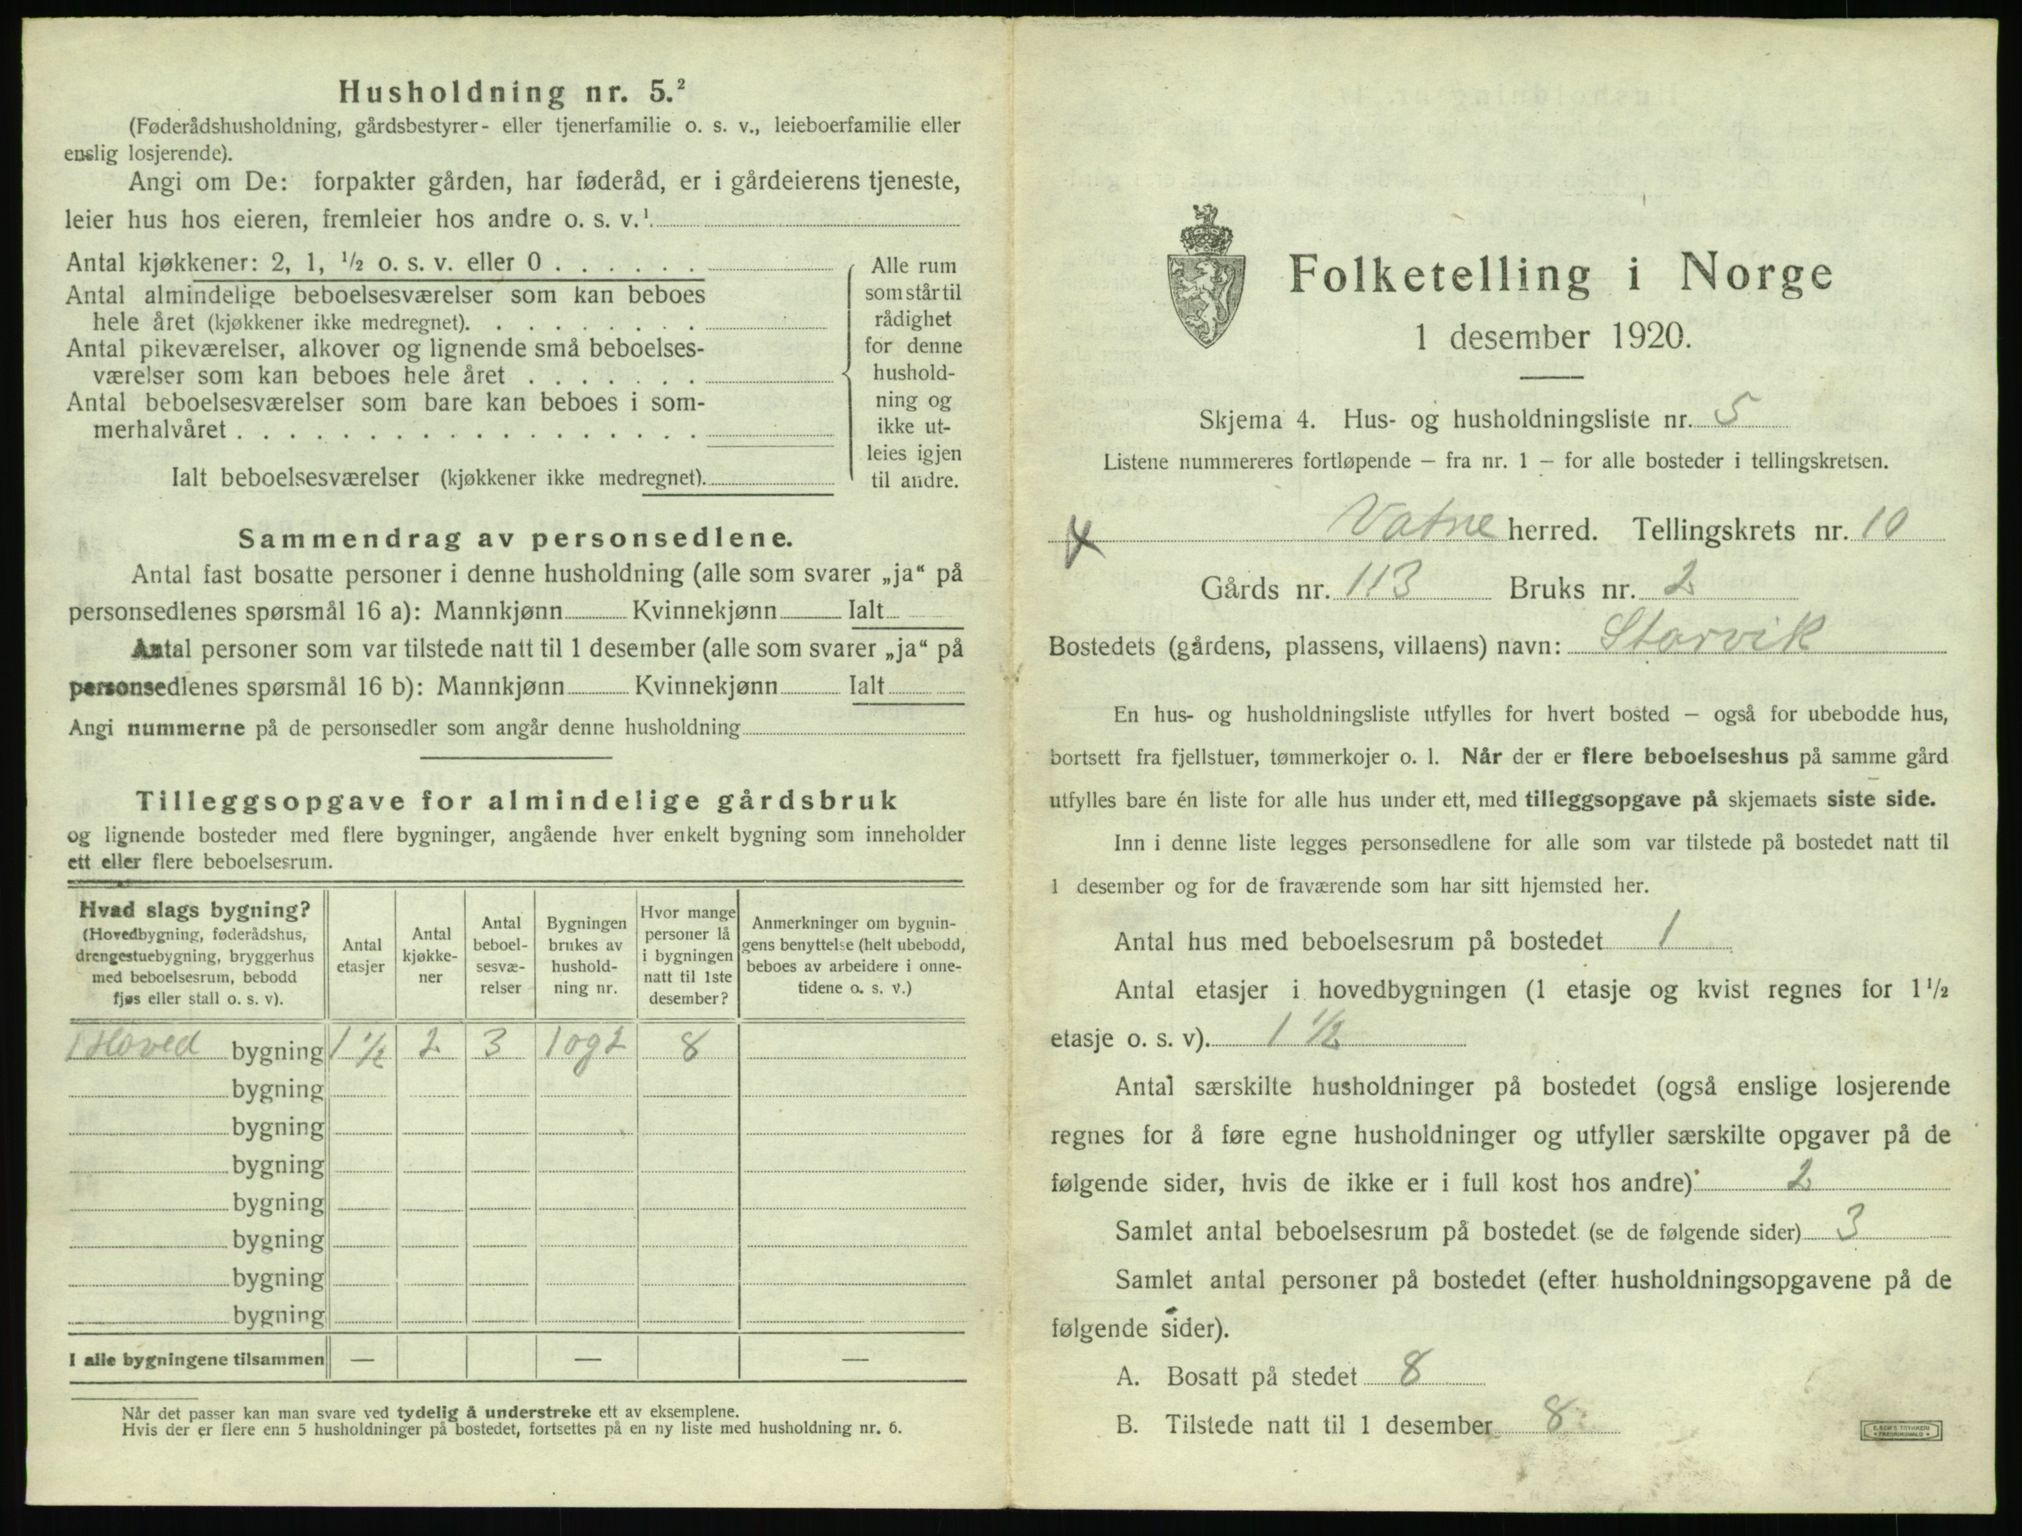 Husholdning nr. 5.²
(Føderådshusholdning, gårdsbestyrer- eller tjenerfamilie o. s. v., leieboerfamilie eller
enslig losjerende).
Angi om De: forpakter gården, har føderåd, er i gårdeierens tjeneste,
leier hus hos eieren, fremleier hos andre o. s. v.¹
Antal kjøkkener: 2, 1, ½ o. s. v. eller 0 . . . . . .
Antal almindelige beboelsesværelser som kan beboes
hele året (kjøkkener ikke medregnet). . . . . . . . .
Antal pikeværelser, alkover og lignende små beboelses-
værelser som kan beboes hele året . . . . . . .
Antal beboelsesværelser som bare kan beboes i som-
merhalvåret . . . . . . . . . . . . . . . . . .
Ialt beboelsesværelser (kjøkkener ikke medregnet).
Alle rum
som står til
rådighet
for denne
hushold-
ning og
ikke ut-
leies igjen
til andre.
Sammendrag av personsedlene.
Antal fast bosatte personer i denne husholdning (alle som svarer „ja“ på
personsedlenes spørsmål 16 a): Mannkjønn Kvinnekjønn Ialt
Antal personer som var tilstede natt til 1 desember (alle som svarer „ja“ på
personsedlenes spørsmål 16 b): Mannkjønn Kvinnekjønn Ialt
Angi nummerne på de personsedler som angår denne husholdning
Tilleggsopgave for almindelige gårdsbruk
og lignende bosteder med flere bygninger, angående hver enkelt bygning som inneholder
ett eller flere beboelsesrum.
Hvad slags bygning?
(Hovedbygning, føderådshus,
drengestuebygning, bryggerhus
med beboelsesrum, bebodd
fjøs eller stall o. s. v).
Antal
etasjer
Antal
kjøkke-
ner
Antal
beboel-
sesvæ-
relser
Bygningen
brukes av
hushold-
ning nr.
Hvor mange
personer lå
i bygningen
natt til 1ste
desember?
Anmerkninger om bygnin-
gens benyttelse (helt ubebodd,
beboes av arbeidere i onne-
tidene o. s. v.)
1 Hoved bygning 1 ½ 2 3 1 og 2 8
bygning
bygning
bygning
bygning
bygning
bygning
bygning
I alle bygningene tilsammen — — —
Når det passer kan man svare ved tydelig å understreke ett av eksemplene.
Hvis der er flere enn 5 husholdninger på bostedet, fortsettes på en ny liste med husholdning nr. 6.
Folketelling i Norge
1 desember 1920.
Skjema 4. Hus- og husholdningsliste nr. 5
Listene nummereres fortløpende – fra nr. 1 – for alle bosteder i tellingskretsen.
Vatne herred. Tellingskrets nr. 10
Gårds nr. 113 Bruks nr. 2
Bostedets (gårdens, plassens, villaens) navn: Storvik
En hus- og husholdningsliste utfylles for hvert bosted – også for ubebodde hus,
bortsett fra fjellstuer, tømmerkojer o. l. Når der er flere beboelseshus på samme gård
utfylles bare én liste for alle hus under ett, med tilleggsopgave på skjemaets siste side.
Inn i denne liste legges personsedlene for alle som var tilstede på bostedet natt til
1 desember og for de fraværende som har sitt hjemsted her.
Antal hus med beboelsesrum på bostedet 1
Antal etasjer i hovedbygningen (1 etasje og kvist regnes for 1½
etasje o. s. v). 1 ½
Antal særskilte husholdninger på bostedet (også enslige losjerende
regnes for å føre egne husholdninger og utfyller særskilte opgaver på de
følgende sider, hvis de ikke er i full kost hos andre) 2
Samlet antal beboelsesrum på bostedet (se de følgende sider) 3
Samlet antal personer på bostedet (efter husholdningsopgavene på de
følgende sider).
A. Bosatt på stedet 8
B. Tilstede natt til 1 desember 8